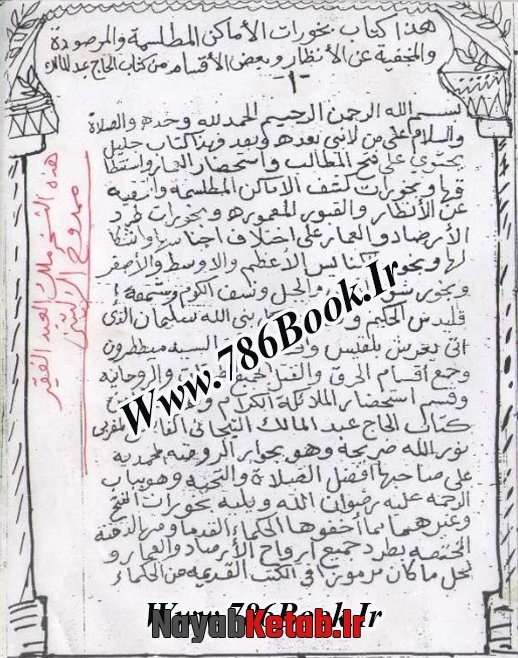 هذا كتاب بخورات الأماكن المطلسمة والمرصودة
والمخفية عن الأنظار وبعض الأقسام من كتاب الحاج عبد المالك
-١-
بسم الله الرحمن الرحيم الحمد لله وحده والصلاة
والسلام على من لا نبي بعده وبعد فهذا كتاب جليل
يحتوي على فتح المطالب واستحضار العمار واستنطا
قها وبخورات كشف الأماكن المطلسمة والمخفية
عن الأنظار والقبور المغمورة وبخورات طرد
الأرصاد والعمار على اختلاف أجناسها وأشكا
لها وبخور كناس الأعظم والأوسط والأصغر
وبخور الجبل ونسف الكوم وشمعة إ
قليدس الحكيم نبى الله سليمان الذى
أتى بعرش بلقيس السيد ميططرون
وجمع أقسام الحرق والقتل والروحانية
وقسم استحضار الملائكة الكرام
كتاب الحاج عبد المالك التيجاني المغربى
نور الله ضريحه وهو بجوار الروضه المحمديه
على صاحبها أفضل الصلاة والتحيه وهو بباب
الرحمه عليه رضوان الله ويليه بخورات الفتح
وغيرهما مما أخفوها الحكماء القدماء
المختصه بطرد جميع أرواح الأرصاد والعمار و
لحل ما كان مرموزا فى الكتب القديمه عن الحكماء
هذه النسخه ملك العبد الفقير
ممدوح
Www.786Book.Ir
Www.786Book.Ir
NayabKetab.ir